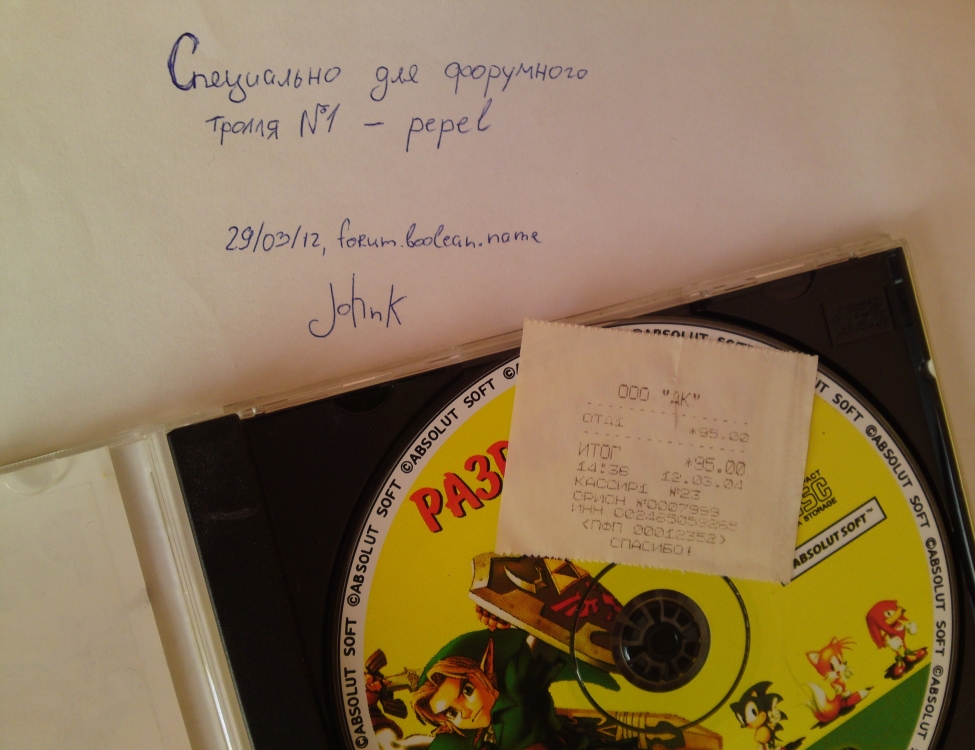 Специально для форумного
тролля №1 – pepel
29/03/12, forum.boolean.name
JohnK
ООО "АК"
ОТД1 *95.00
ИТОГ *95.00
14:36 12.03.04
КАССИР1 №23
ОРИОН №0007999
ИНН
<ПФП 00012352>
СПАСИБО!
©ABSOLUT SOFT ©ABSOLUT SOFT ©ABSOLUT SOFT ©ABSOLUT SOFT ©ABSOLUT SOFT
ABSOLUT SOFT™